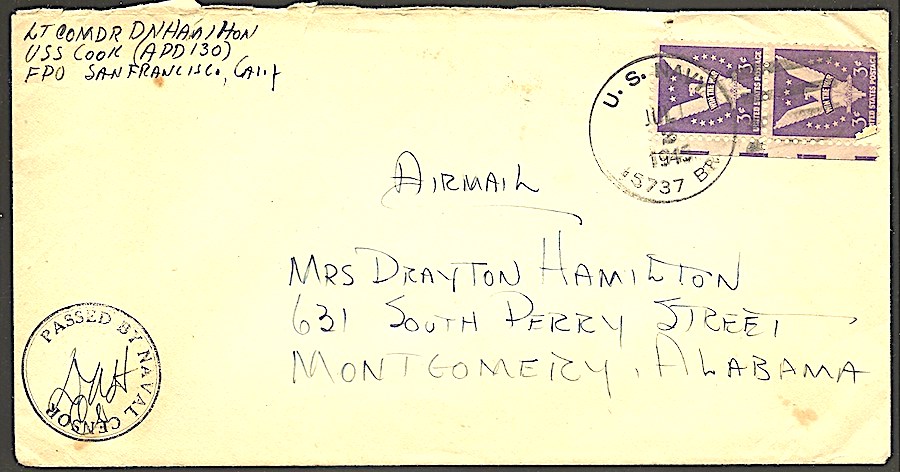 LT COMDR D N HAMILTON
USS COOK (APD 130)
FPO SAN FRANCISCO, CALIF
U. S. NAVY
JUL
1945
15737 BR.
WIN THE WAR
3¢
UNITED STATES POSTAGE
WIN THE WAR
3¢
UNITED STATES POSTAGE
AIRMAIL
MRS DRAYTON HAMILTON
631 SOUTH PERRY STREET
MONTGOMERY, ALABAMA
PASSED BY NAVAL CENSOR